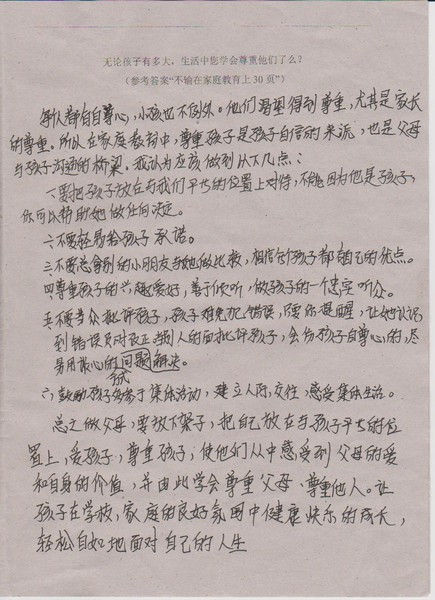 无论孩子有多大，生活中您学会尊重他们了么？
（参考答案“不输在家庭教育上30页”）
每人都有自尊心，小孩也不例外。他们渴望得到尊重，尤其是家长
的尊重。所以在家庭教育中，尊重孩子是孩子自信的来源，也是父母
与孩子沟通的桥梁。我认为应该做到以下几点：
一、要把孩子放在与我们平等的位置上对待，不能因为他是孩子，
你可以帮助她做任何决定。
二、不要轻易给孩子承诺。
三、不要总拿别的小朋友与她做比较，相信每个孩子都有自己的优点。
四、尊重孩子的兴趣爱好，善于倾听，做孩子的一个忠实听众。
五、不要当众批评孩子，孩子难免犯错误，提醒，让她认识
到错误及时改正，当别人的面批评孩子，会伤孩子自尊心的，尽
量用耐心的方式问题解决。
六、鼓励孩子多参于集体活动，建立人际交往，感受集体生活。
总之做父母，要放下架子，把自己放在与孩子平等的位
置上，爱孩子，尊重孩子，使他们从中感受到父母的爱
和自身的价值，并由此学会尊重父母、尊重他人。让
孩子在学校，家庭的良好氛围中健康快乐的成长，
轻松自如地面对自己的人生